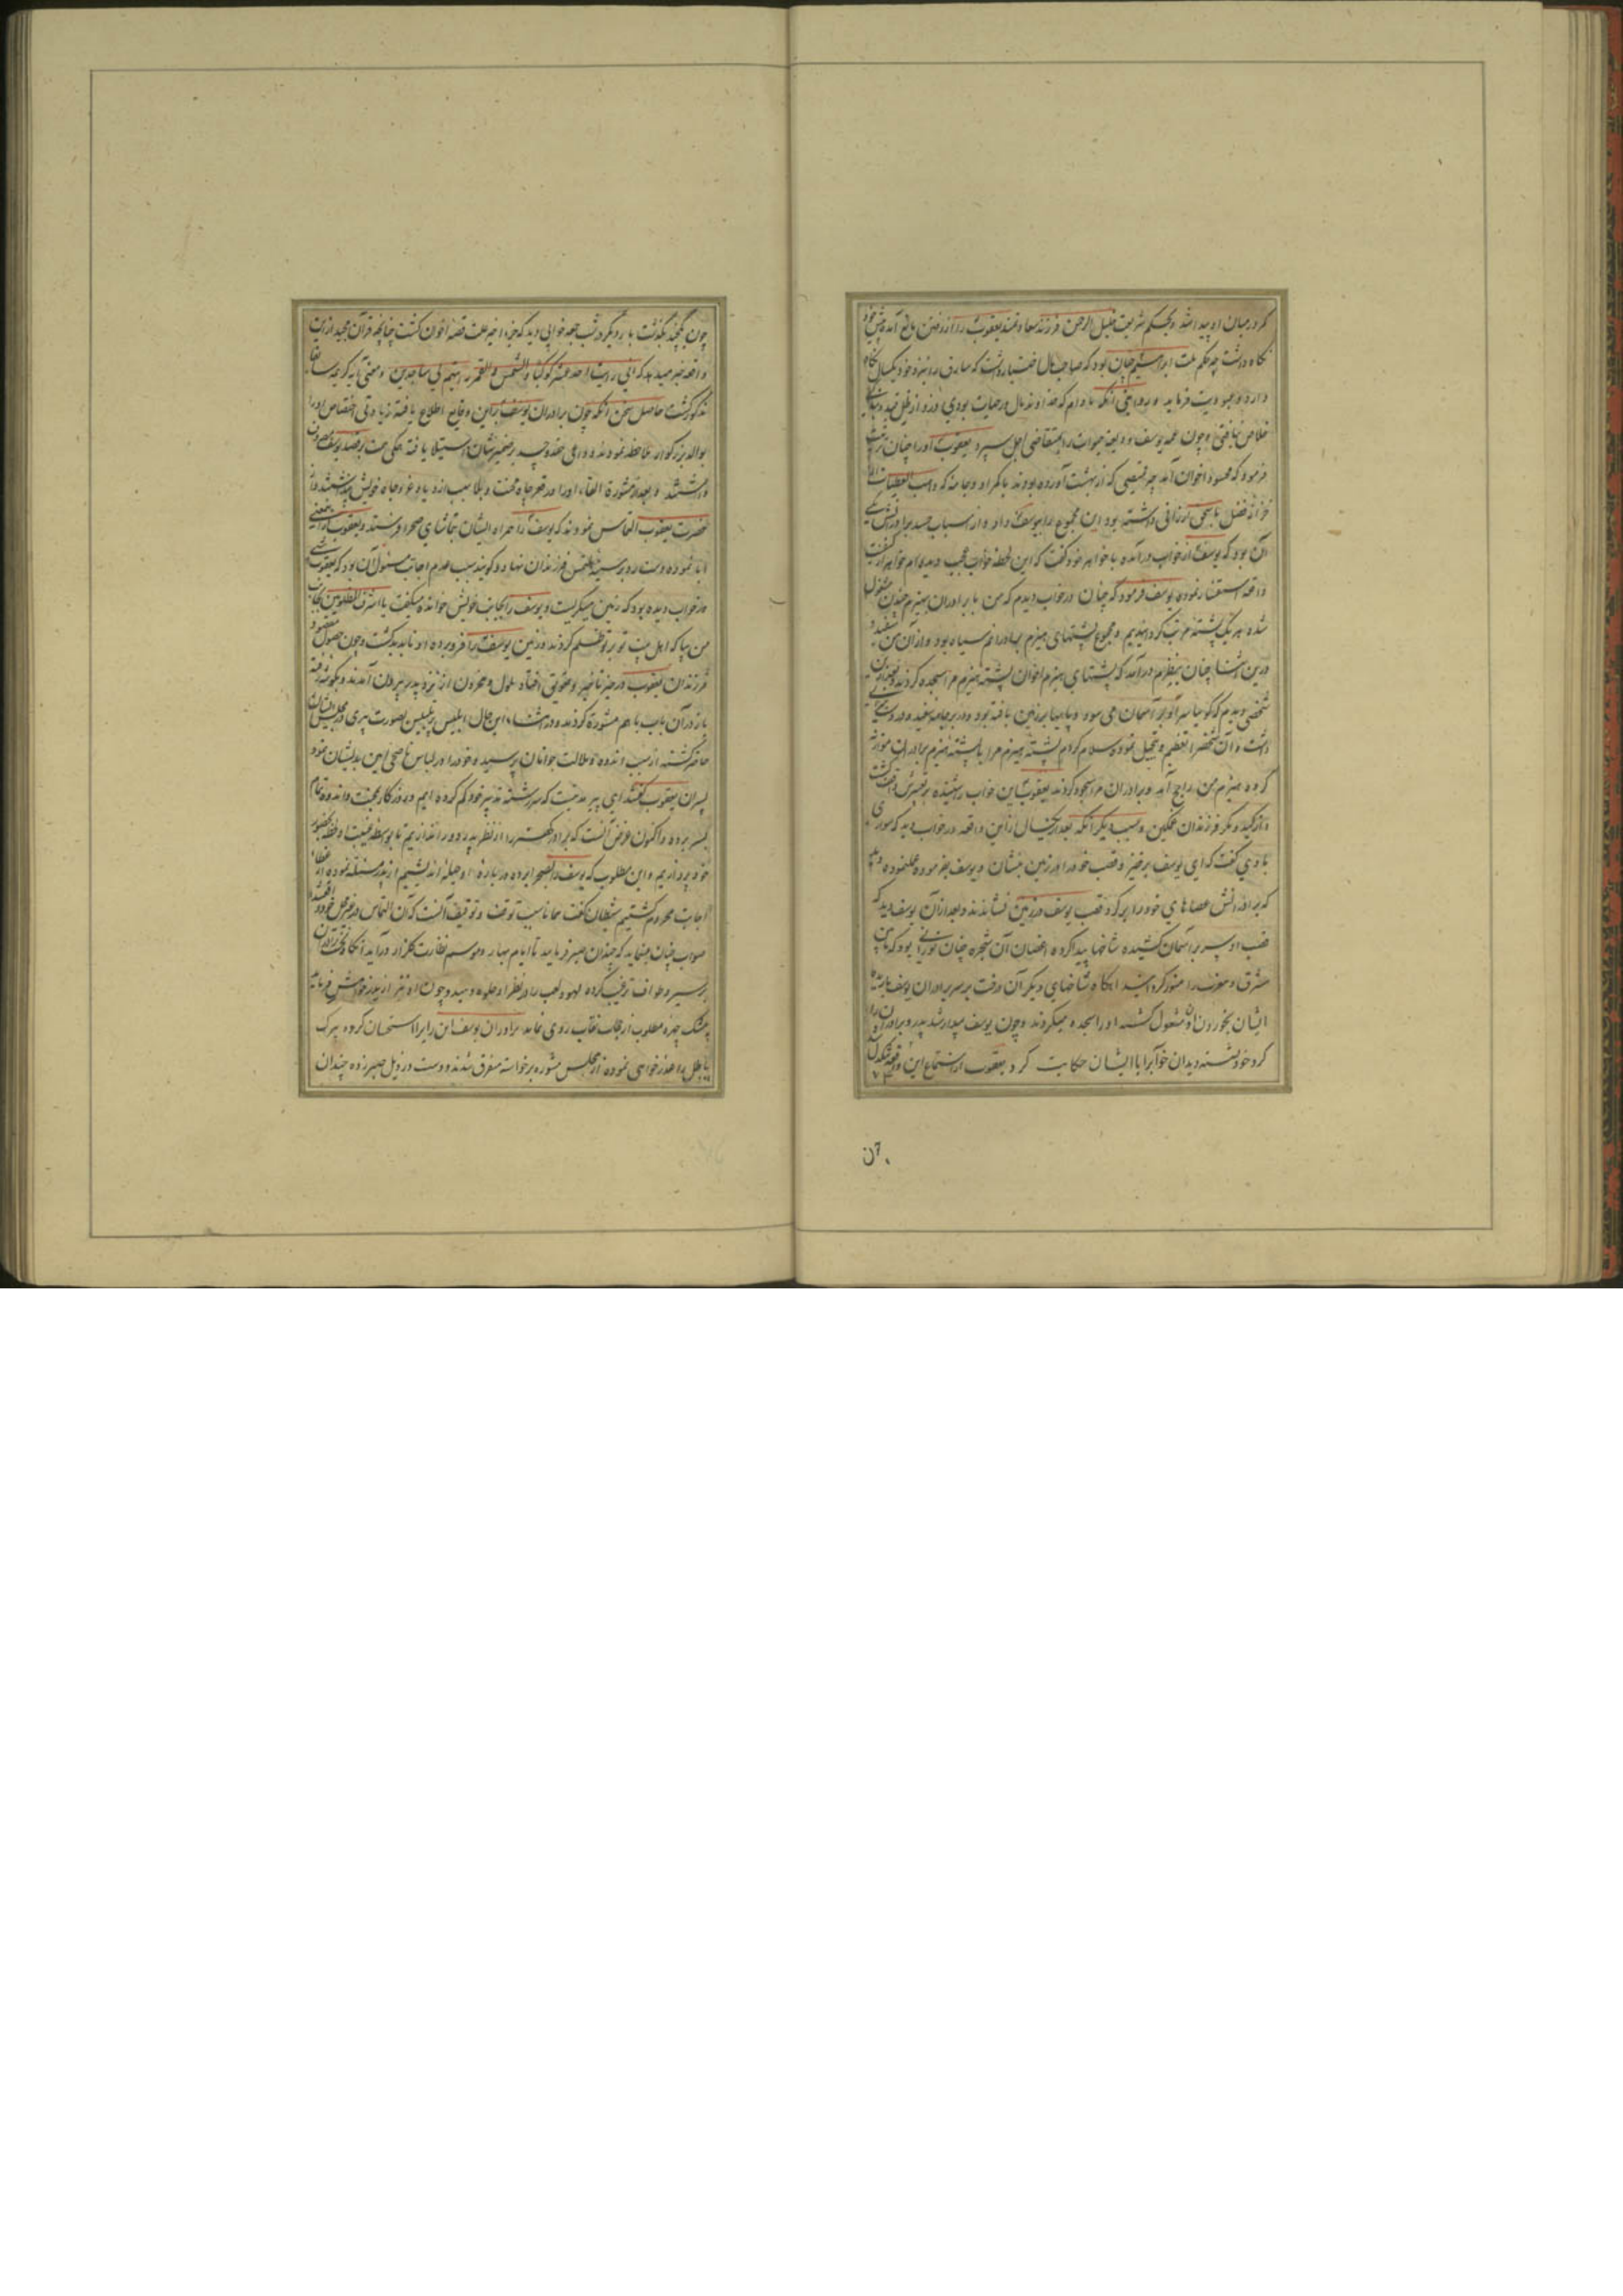 کمر در میان او پیدا شد و بحکم شریعت خلیل الرحمن فرزند سعادتمند یعقوب را از رفتن مانع آمده پیش خود
نکاه داشت چه حکم ملت ابراهیم چنان بود که صاحب مال اختیار داشت که سارق را نزد خود یکسال نکاه
دارد و
خلاص نیافتی و چون عمه یوسف ودیعه حیوات را بمتقاضی اجل سپرد یعقوب او را چنان تربیت
فرمود که محسود اخوان آمد چه قمیصی که از بهشت آورده بودند با کمر او و جامه که واهب العطیات از
خزانهٔ فضل باسحق ارزانی داشته بود این مجموع را بیوسف داد و از اسباب حسد برادرانش یکی
آن بود که یوسف از خواب در آمده با خواهر خود کفت که این لحظه خواب عجیب دیده‌ام خواهر از کیفیت
واقعه استفسار نموده یوسف فرمود که چنان در خواب دیدم که من با برادران بهیزم چیدن مشغول
شده هر یک پشته مرتب کردانیدیم و مجموع پشتهای هیزم برادرانم سیاه بود و از آن من سفید و
درین اثنا چنان بنظرم درآمد که پشتهای هیزم اخوان پشته هیزم مرا سجده کردند و بعد از آن
شخصی دیدم که کویا سر او بر آسمان می سود و پایها بر زمین یافته بود و در بر جامه سفید و در دست
داشت و آن شخص را تعظیم و تبجیل نموده سلام کردم پشته هیزم مرا با پشته هیزم برادران موازنه
کرده هیزم من راجح آمد و برادران مرا سجود کردند یعقوب این خواب را شنیده بر تعبیرش واقف کشت
و از کید و مکر فرزندان غمکین و سبب دیکر آنکه بعد از یکسال ازین واقعه در خواب دید که
با وی کفت که ای یوسف برخیز و قصب خود را در زمین بنشان و یوسف بفرموده عمل نموده دید
که برادرانش عصاهای خود را بر کرد قصب یوسف در زمین نشاندند و بعد از آن یوسف دید که
قصب او سر بر آسمان کشیده شاخها پیدا کرده اغصان آن شجره چنان نورانی بود که مابین
مشرق و مغرب را منور کردانید انکاه شاخهای دیکر آن درخت بر سر برادران یوسف
ایشان بخوردن آن مشغول کشته او را سجده میکردند و چون یوسف بیدار شد پدر و برادران را
کرد خود نشسته دید آن خواب را با ایشان حکایت کرد یعقوب از استماع این واقعه تنکدل
چون یکچند بکذشت بار دیکر در شب جمعه خوابی دید که جزء اخیر علت قصه اخوان کشت چنانچه قرآن مجید ازین
واقعه خبر میدهد که انی رایت احد عشر کوکبا والشمس والقمر رایتهم لی ساجدین و معنی آیه کریمه سابقا
مذکور کشت حاصل سخن انکه چون برادران یوسف برین وقایع اطلاع یافته زیادتی اختصاص او را
بوالد بزرکوار ملاحظه نمودند دواعی حقد و حسد بر ضمیرشان استیلا یافته همکی همت بر قصد یوسف مصروف
داشتند و بعد از مشورة القاء او را در قعر چاه محنت و بلا سبب ازدیاد عز و جاه خویش پنداشتند و از
حضرت یعقوب التماس نمودند که یوسف را همراه ایشان بتماشای صحرا فرستد و یعقوب ازین معنی
ابا نموده دست رد بر سینه ملتمس فرزندان نهاد و کویند سبب عدم اجابت مسئول آن بود که یعقوب شبی
در خواب دیده بود که زمین میکریست و یوسف را بجانب خویش خوانده میکفت یا اشرف المظلومین بجانب
من بیا که اهل بیت تو بر تو ظلم کردند و زمین یوسف را فرو برده او ناپدید کشت و چون حصول مقصود
فرزندان یعقوب در حیز تاخیر و تعویق افتاد ملول و محزون از نزد پدر بیرون آمدند و بکوشه رفته
باز در آن باب با هم مشورة کردند و در اثناء این حال ابلیس پر تلبیس بصورت پیری در مجلس ایشان
حاضر کشته از سبب اندوه و ملالت جوانان پرسیده و خود را در لباس ناصحی امین بدیشان نمود
پسران یعقوب کفتند ای پیر مدتیست که سر رشته تدبیر خود کم کرده ایم و روزکار بمحنت و اندوه تمام
بسر برده و اکنون غرض آنست که برادر کهتر را از نظر پدر دور اندازیم تا بواسطه غیبت او
خود پردازیم و این مطلوب که یوسف را بصحرا برده در باره او حیله اندیشیم از پدر مسئلت نموده از
اجابت محروم کشتیم شیطان کفت مناسب توقف و توقیف آنست که آن التماس در غیر محل خود
صواب چنان مینماید که چندان صبر فرمایید تا ایام بهار و موسم نظارت کلزار درآید انکاه
بر سیر و طواف ترغیب کرده لهو و لعب را در نظر او جلوه دهید و چون او نیز از پدر خواهش فرماید
بی شک چهره مطلوب از حجاب نقاب روی نماید برادران یوسف این رای را استحسان کرده پیرک
باطل را عذرخواهی نموده از مجلس مشوره برخاسته متفرق شدند و دست در ذیل صبر زده چندان